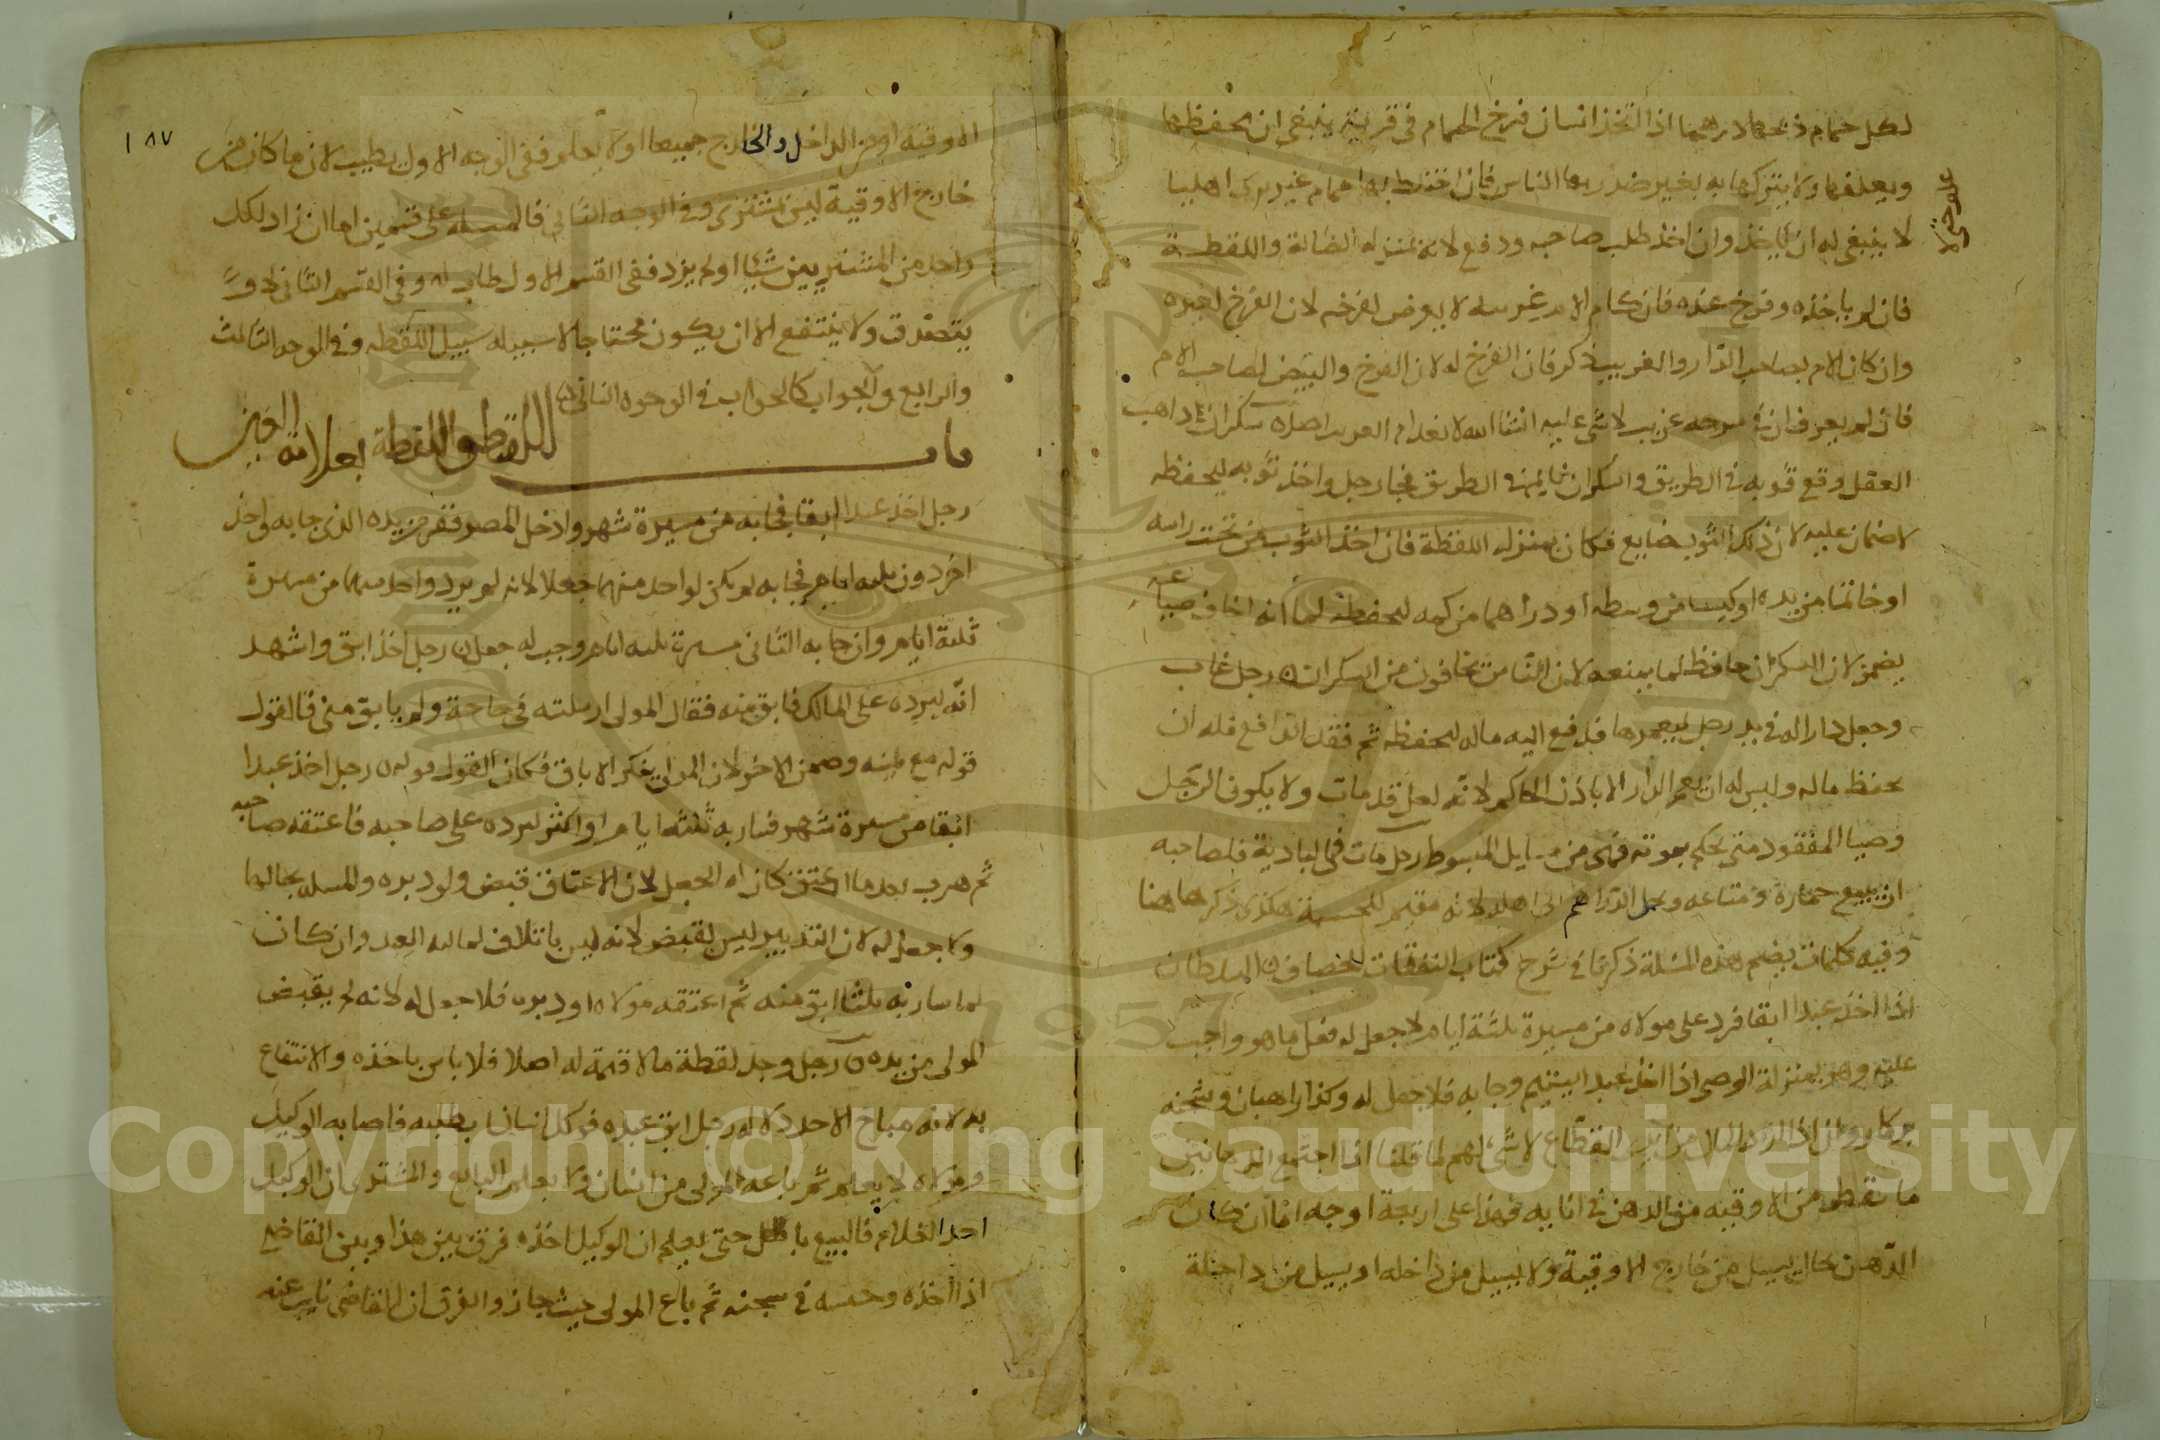 لكل حمام ذبحها درهما اذا اتخذ انسان فرخ الحمام في قرية ينبغي ان يحفظها
ويعلفها ولا يتركها به بغير ضرر بها الناس فان اختلط بها حمام غيره اهليا
لا ينبغي له ان ياخذ وان اخذ طلب صاحبه ودفع لانه بمنزلة الضالة واللقطة
فان لم ياخذه وفرخ عنده فان كان الام غريبة لا يعرض لفرخه لان الفرخ لغيره
وان كان الام لصاحب الدار والغريب ذكر فان الفرخ له لان الفرخ والبيض لصاحب الام
فان لم يعرف ان في برجه غريب لا شي عليه انشا الله سكران ذاهب
العقل وقع ثوبه في الطريق والسكران نايم في الطريق فجا رجل واخذ ثوبه ليحفظه
لا ضمان عليه لان ذلك الثوب ضايع فكان بمنزلة اللقطة فان اخذ الثوب من تحت راسه
او خاتما من يده او كيسا من وسطه او دراهما من كمه ليحفظه لما انه اخاف ضياعه
يضمن لان السكران حافظ لما معه لان الناس يخافون من السكران رجل غاب
وجعل داراله في يد رجل ليعمرها فدفع اليه ماله ليحفظه ثم فقد الدافع فله ان
يحفظ ماله وليس له ان يعمر الدار الا باذن الحاكم لانه لعل قد مات ولا يكون الرجل
وصيا المفقود متى يحكم بموته فهي من مسايل المبسوط رجل مات في البادية فلصاحبه
ان يبيع حماره ومتاعه ويحمل الدراهم الى اهله لانه مقيم للحسبة هكذى ذكر هاهنا
وفيه كلمات بضم هذه المسئلة ذكرتها في شرح كتاب النفقات للخصاف السلطان
اذا اخذ عبدا ابقا فرد على مولاه من مسيرة ثلثة ايام لا جعل له فعل ما هو واجب
عليه وهو بمنزلة الوصي اذا اخذ عبد اليتيم وجا به فلا جعل له وكذا راهبان وشحنه
كاروان اذا رد المال من ايدي القطاع لا شي لهم لما قلنا اذا اجتمع الدهانين
ما تقطر من الاوقية من الدهن في انايه فهذا على اربعة اوجه اما ان كان
الدهن كان يسيل من خارج الاوقية ولا يسيل من داخله او يسيل من داخلة
١٨٧
الاوقية او من الداخل والخارج جميعا اولا يعلم ففي الوجه الاول يطيب لان ما كان من
خارج الاوقية ليس بمشترى وفي الوجه الثاني فالمسئلة على قسمين اما ان زاد لكل
واحد من المشتريين شيا او لم يزد ففي القسم الاول طاب له وفي القسم الثاني لا و
يتصدق ولا ينتفع الا ان يكون محتاجا لا سبيله سبيل اللقطة وفي الوجه الثالث
والرابع والجواب كالجواب في الوجوه الثاني
باب اللقيط واللقطة بعلامة العين
رجل اخذ عبدا ابقا فجا به من مسيرة شهر وادخل المصر ففر من يده الذي جا به واخذ
اخر دون ثلثة ايام فجا به لم يكن لواحد منهما جعلا لانه لم يرد واحد منهما من مسيرة
ثلثة ايام وان جا به الثاني مسيرة ثلثة ايام وجب له جعل رجل اخذ ابق واشهد
انه ليرده على المالك فابق منه فقال المولى ارسلته في حاجة ولم يابق مني فالقول
قوله مع يمينه وضمن الاخر لان المولى ينكر الاباق فكان القول قوله رجل اخذ عبدا
ابقا من مسيرة شهر فسار به ثلثة ايام او اكثر ليرده على صاحبه فاعتقه صاحبه
ثم هرب بعد ما اعتق كان له الجعل لان الاعتاق قبض ولو دبره والمسئلة بحالها
ولا جعل له لان التدبير ليس بقبض لانه ليس باتلاف لمالية العبد وان كان
لما سار به ثلثا ابق منه ثم اعتقه مولاه او دبره فلا جعل له لانه لم يقبض
المولى من يده رجل وجد لقطة ما لا قيمة له اصلا فلا باس باخذه والانتفاع
به لانه مباح رجل ابق عبده فوكل انسانا بطلبه فاصابه الوكيل
ومولاه لا يعلم ثم باعه المولى من انسان ولا يعلم البايع والمشترى ان الوكيل
اخذ الغلام فالبيع باطل حتى يعلم ان الوكيل اخذه فرق بين هذا وبين القاضي
اذا اخذه وحبسه في سجنه ثم باع المولى حيث جاز والفرق ان القاضي نايب عنه
Copyright © King Saud University
1957